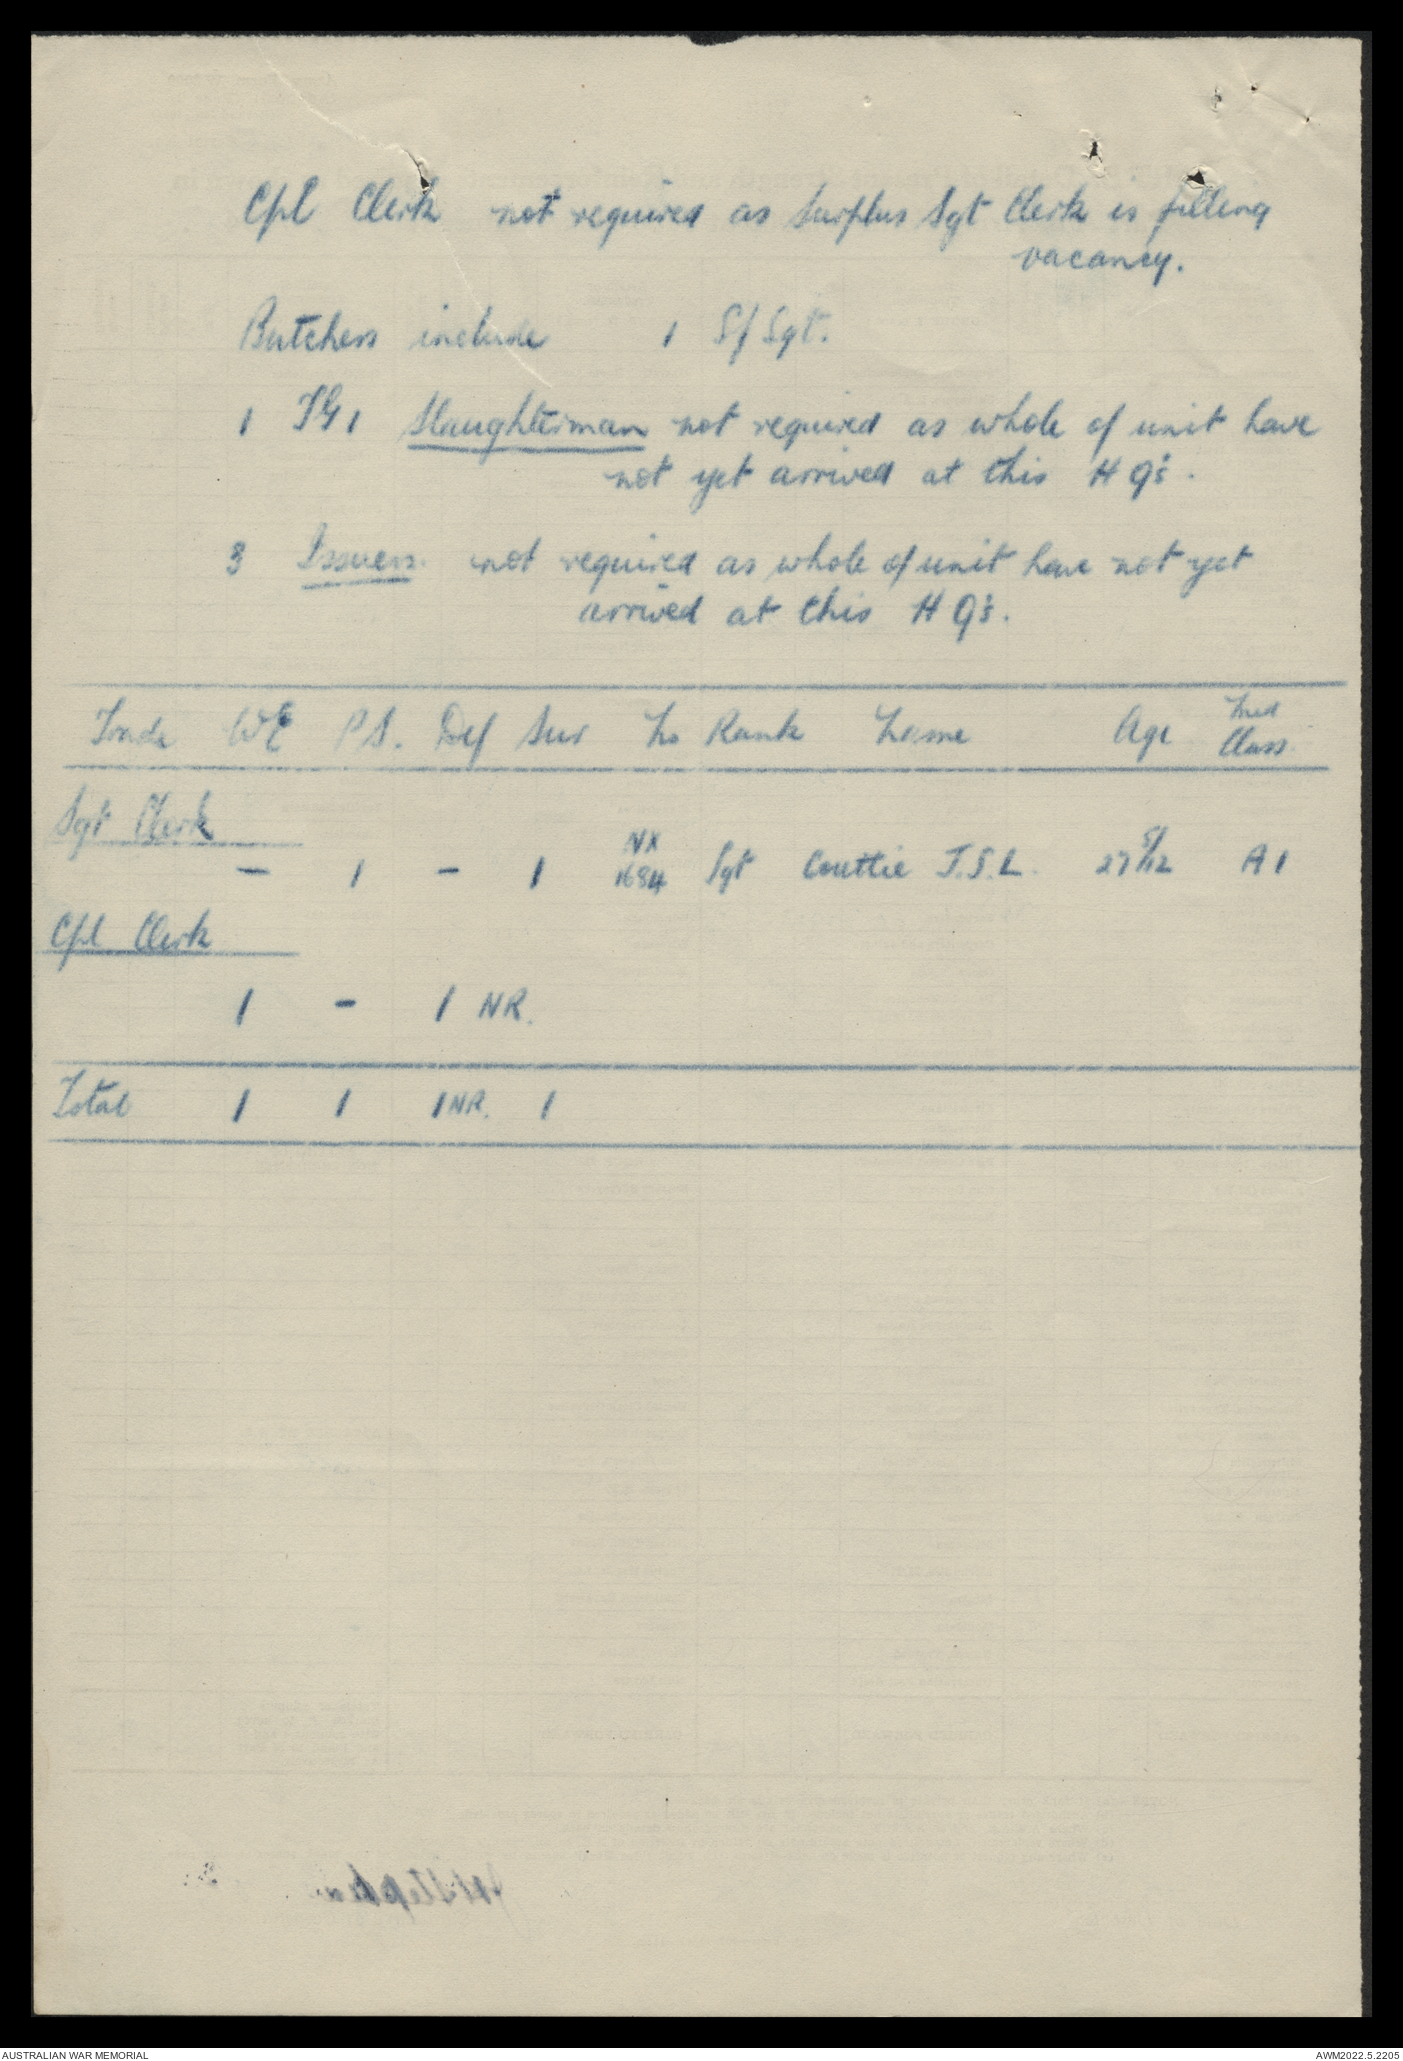 Cpl Clerk not required as surplus Sgt Clerk is filling
vacancy.
Butchers include 1 S/Sgt.
1 TG1 Slaughterman not required as whole of unit have
not yet arrived at this HQ's.
3 Issuers. not required as whole of unit have not yet
arrived at this HQ's.
Trade WE PS. Def Sur No Rank Name Age Med Class.
Sgt Clerk
— 1 — 1 NX 1684 Sgt Couttie J.S.L. 27 5/12 A1
Cpl Clerk
1 - 1 NR.
Total 1 1 1 NR. 1
AUSTRALIAN WAR MEMORIAL
AWM2022.5.2205